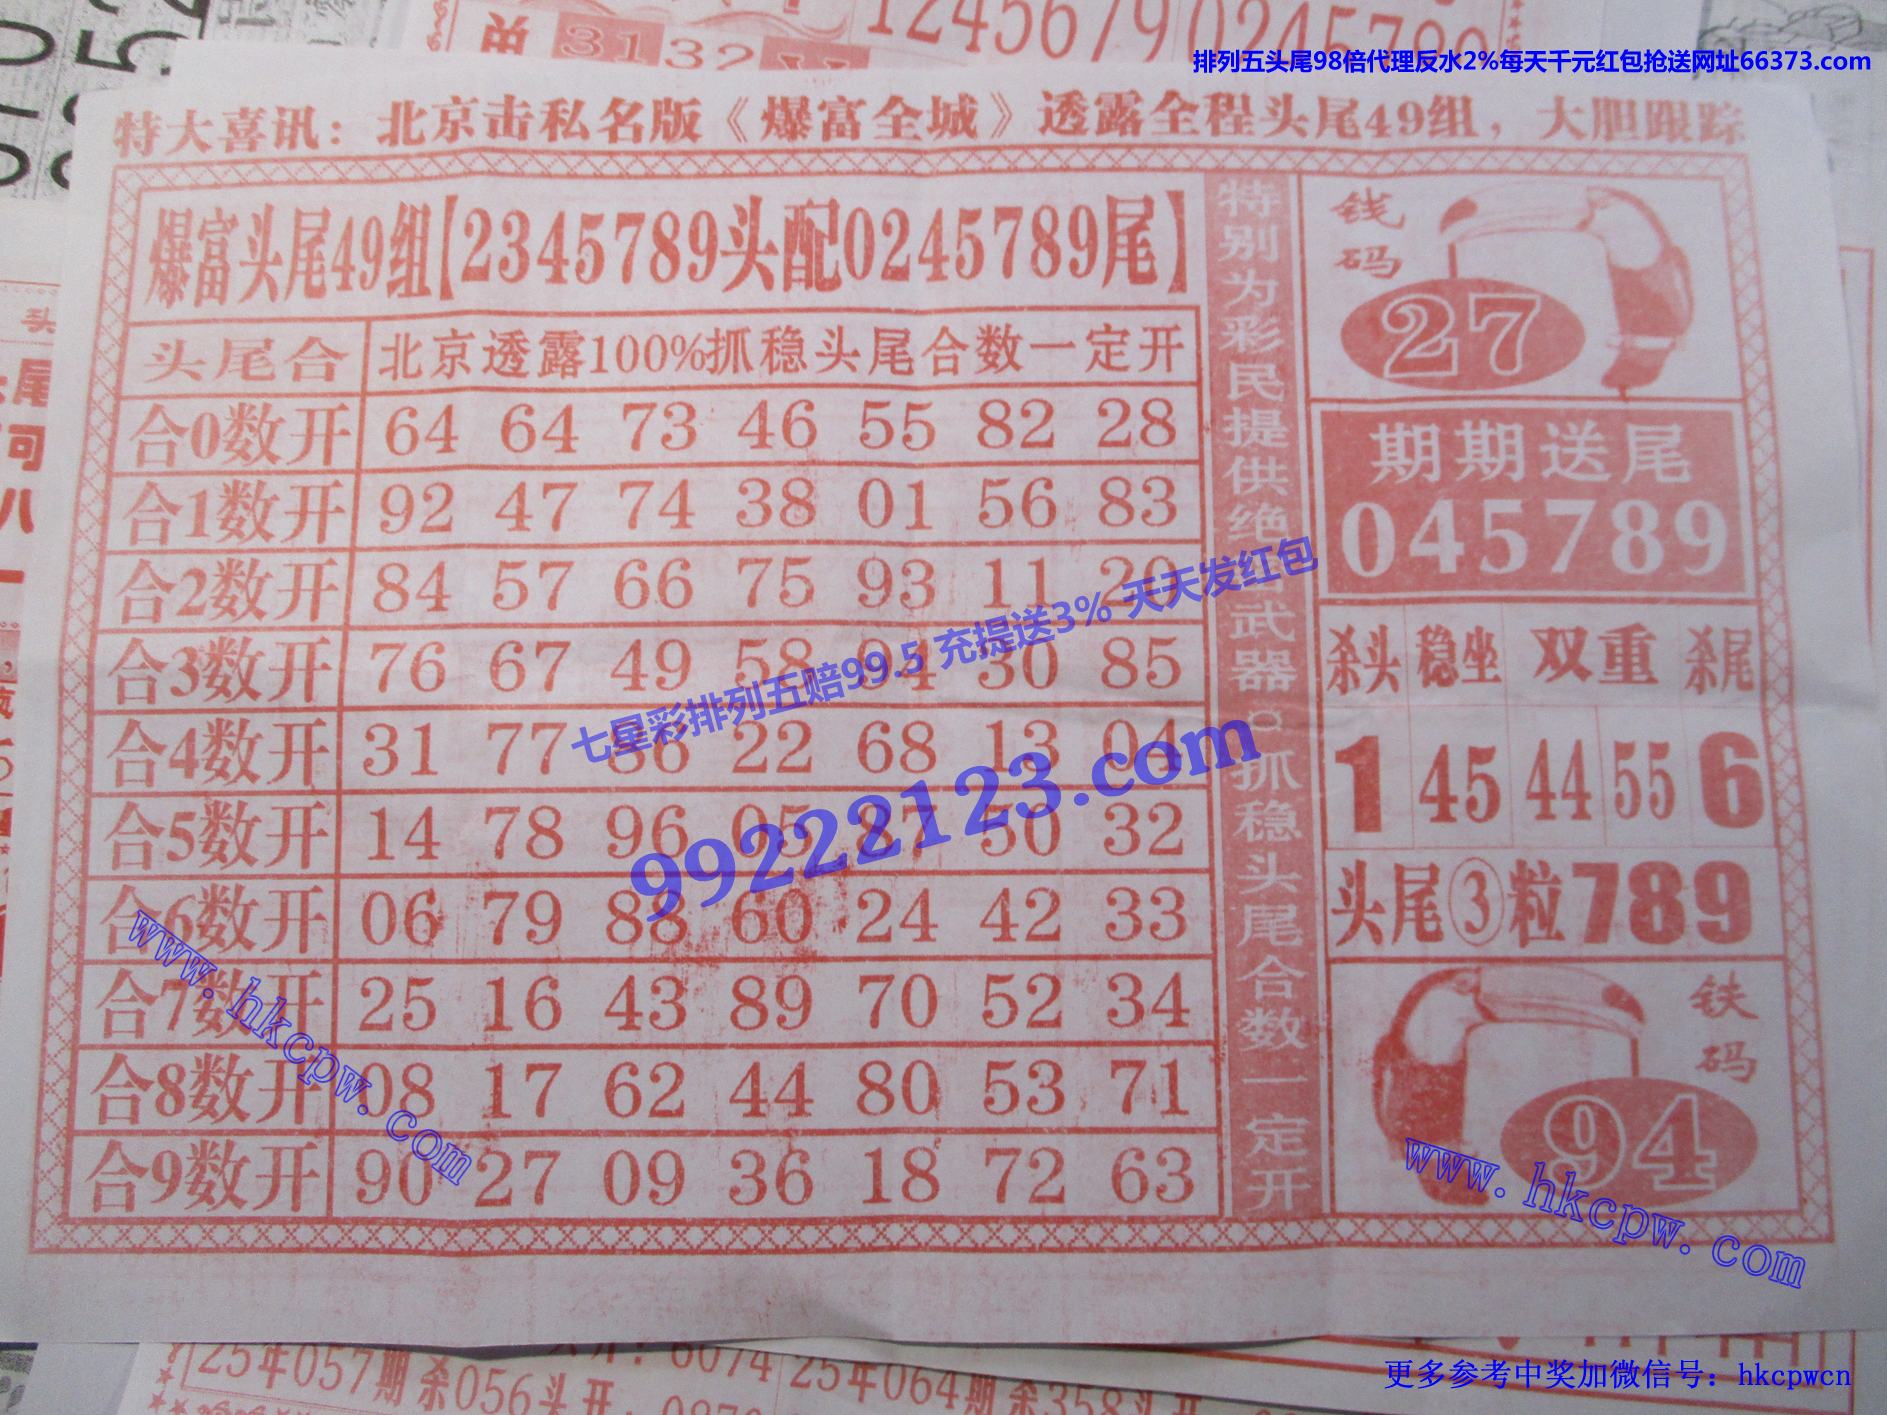 单 31 32
1245679
排列五头尾98倍代理反水2%每天千元红包抢送网址66373.com
特大喜讯：北京击私名版《爆富全城》透露全程头尾49组，大胆跟踪
爆富头尾49组【2345789头配0245789尾】
头尾合 北京透露100%抓稳头尾合数一定开
合0数开 64 64 73 46 55 82 28
合1数开 92 47 74 38 01 56 83
合2数开 84 57 66 75 93 11 20
合3数开 76 67 49 58 94 30 85
合4数开 31 77 86 22 68 13 04
合5数开 14 78 96 05 87 50 32
合6数开 06 79 88 60 24 42 33
合7数开 25 16 43 89 70 52 34
合8数开 08 17 62 44 80 53 71
合9数开 90 27 09 36 18 72 63
特别为彩民提供绝
武器
抓稳头尾合数一定开
钱码
27
期期送尾
045789
杀头 稳坐 双重 杀尾
1 45 44 55 6
头尾③粒789
铁码
94
七星彩排列五赔99.5 充提送3% 天天发红包
99222123.com
www.hkcpw.com
www.hkcpw.com
25年057期杀056头开：
25年064期杀358头开
更多参考中奖加微信号：hkcpwcn